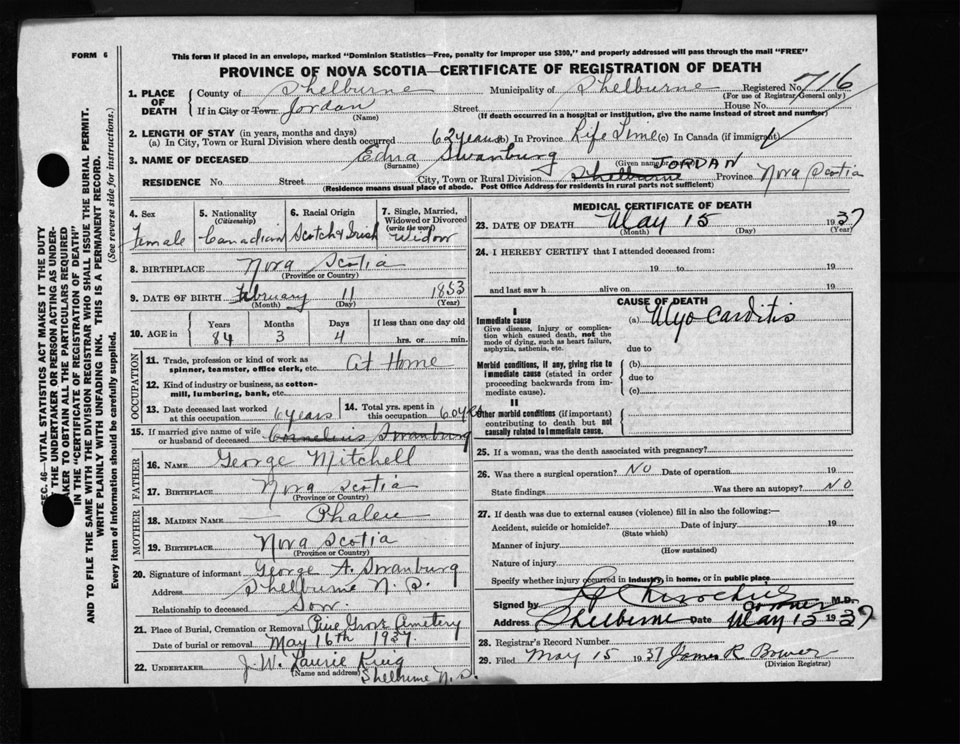 FORM 6
This form if placed in an envelope, marked "Dominion Statistics—Free, penalty for improper use $300," and properly addressed will pass through the mail "FREE"
PROVINCE OF NOVA SCOTIA—CERTIFICATE OF REGISTRATION OF DEATH
1. PLACE OF DEATH County of Shelburne Municipality of Shelburne Registered No. 716
(For use of Registrar General only)
If in City or Town Jordan Street House No.
(Name) (If death occurred in a hospital or institution, give the name instead of street and number)
2. LENGTH OF STAY (in years, months and days)
(a) In City, Town or Rural Division where death occurred 62 years In Province Life Time (c) In Canada (if immigrant)
3. NAME OF DECEASED Edna Swanburg
(Surname) Given name or JORDAN
RESIDENCE No. Street City, Town or Rural Division Shelburne Province Nova Scotia
(Residence means usual place of abode. Post Office Address for residents in rural parts not sufficient)
4. Sex Female
5. Nationality (Citizenship) Canadian
6. Racial Origin Scotch & Irish
7. Single, Married, Widowed or Divorced (write the word) Widow
8. BIRTHPLACE Nova Scotia
(Province or Country)
9. DATE OF BIRTH February 11 1853
(Month) (Day) (Year)
10. AGE in Years Months Days If less than one day old
84 3 4 hrs. or min.
OCCUPATION
11. Trade, profession or kind of work as spinner, teamster, office clerk, etc. At Home
12. Kind of industry or business, as cotton-mill, lumbering, bank, etc.
13. Date deceased last worked at this occupation 6 years
14. Total yrs. spent in this occupation 60 yrs
15. If married give name of wife or husband of deceased Cornelius Swanburg
FATHER
16. NAME George Mitchell
17. BIRTHPLACE Nova Scotia
(Province or Country)
MOTHER
18. MAIDEN NAME — Phalen
19. BIRTHPLACE Nova Scotia
(Province or Country)
20. Signature of informant George A. Swanburg
Address Shelburne N.S.
Relationship to deceased Son.
21. Place of Burial, Cremation or Removal Pine Grove Cemetery
Date of burial or removal May 16th 1937
22. UNDERTAKER J. W. Laurie King
(Name and address) Shelburne N.S.
MEDICAL CERTIFICATE OF DEATH
23. DATE OF DEATH May 15 1937
(Month) (Day) (Year)
24. I HEREBY CERTIFY that I attended deceased from:
19 to 19
and last saw h alive on 19
CAUSE OF DEATH
I
Immediate cause (a) Myo Carditis
Give disease, injury or complication which caused death, not the mode of dying, such as heart failure, asphyxia, asthenia, etc.
due to
Morbid conditions, if any, giving rise to immediate cause (stated in order proceeding backwards from immediate cause).
(b)
due to
(c)
II
Other morbid conditions (if important) contributing to death but not causally related to immediate cause.
25. If a woman, was the death associated with pregnancy?
26. Was there a surgical operation? NO Date of operation 19
State findings Was there an autopsy? NO
27. If death was due to external causes (violence) fill in also the following:—
Accident, suicide or homicide? Date of injury 19
(State which)
Manner of injury
(How sustained)
Nature of injury
Specify whether injury occurred in industry, in home, or in public place
Signed by M.D.
Coroner
Address Shelburne Date May 15 1937
28. Registrar's Record Number
29. Filed May 15 1937 James R Bower
(Division Registrar)
SEC. 46—VITAL STATISTICS ACT MAKES IT THE DUTY
THE UNDERTAKER OR PERSON ACTING AS UNDER-
TAKER TO OBTAIN ALL THE PARTICULARS REQUIRED
IN THE "CERTIFICATE OF REGISTRATION OF DEATH"
AND TO FILE THE SAME WITH THE DIVISION REGISTRAR WHO SHALL ISSUE THE BURIAL PERMIT.
WRITE PLAINLY WITH UNFADING INK. THIS IS A PERMANENT RECORD.
Every item of information should be carefully supplied. (See reverse side for instructions.)